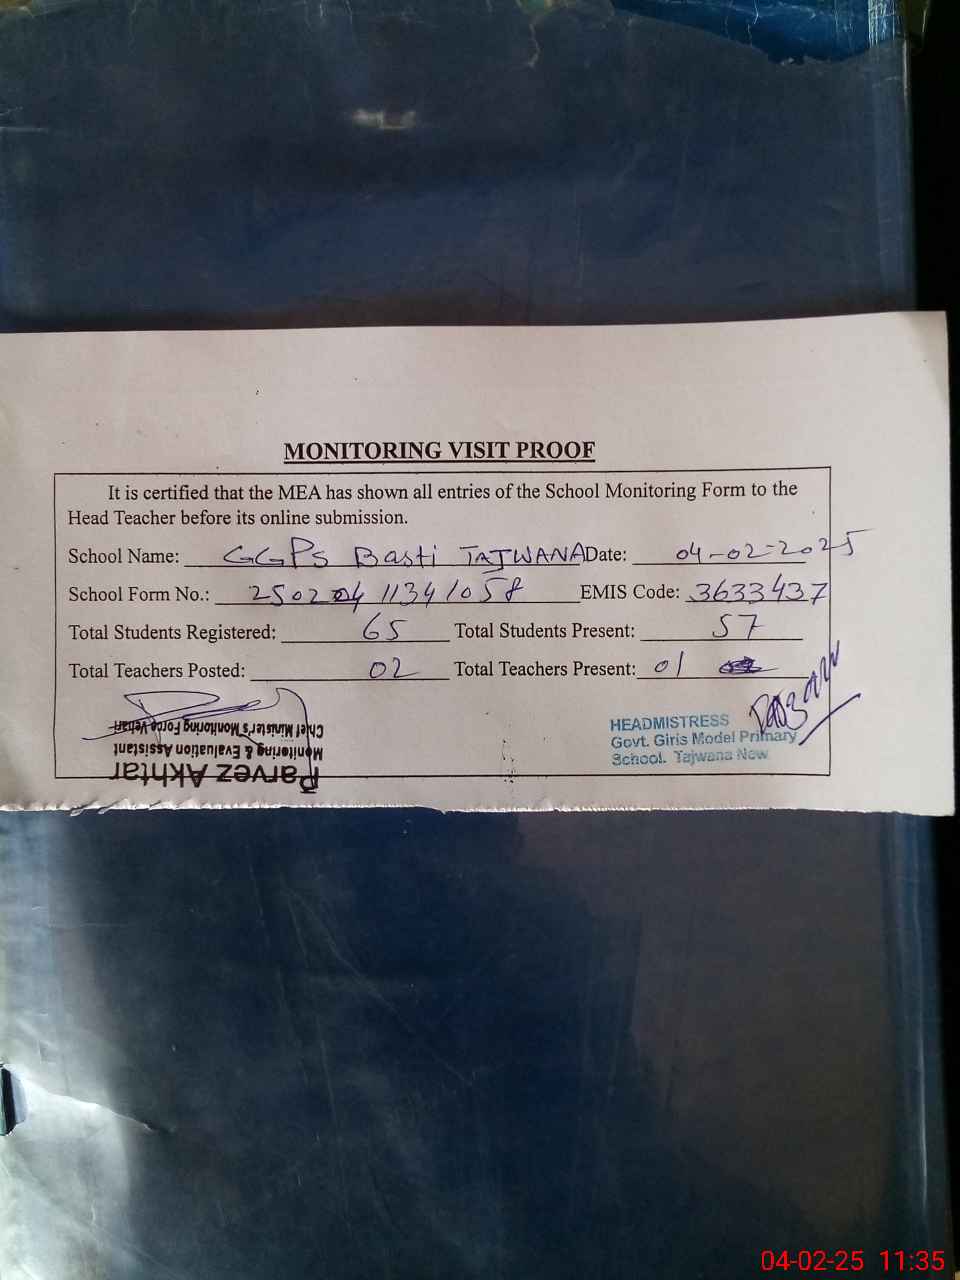 MONITORING VISIT PROOF
It is certified that the MEA has shown all entries of the School Monitoring Form to the
Head Teacher before its online submission.
School Name: GGPS Basti TAJWANA Date: 04-02-2025
School Form No.: 25020411341058 EMIS Code: 3633437
Total Students Registered: 65 Total Students Present: 57
Total Teachers Posted: 02 Total Teachers Present: 01
Parvez Akhtar
Monitoring & Evaluation Assistant
Chief Minister's Monitoring Force Vehari
HEADMISTRESS
Govt. Girls Model Primary
School. Tajwana New
04-02-25 11:35